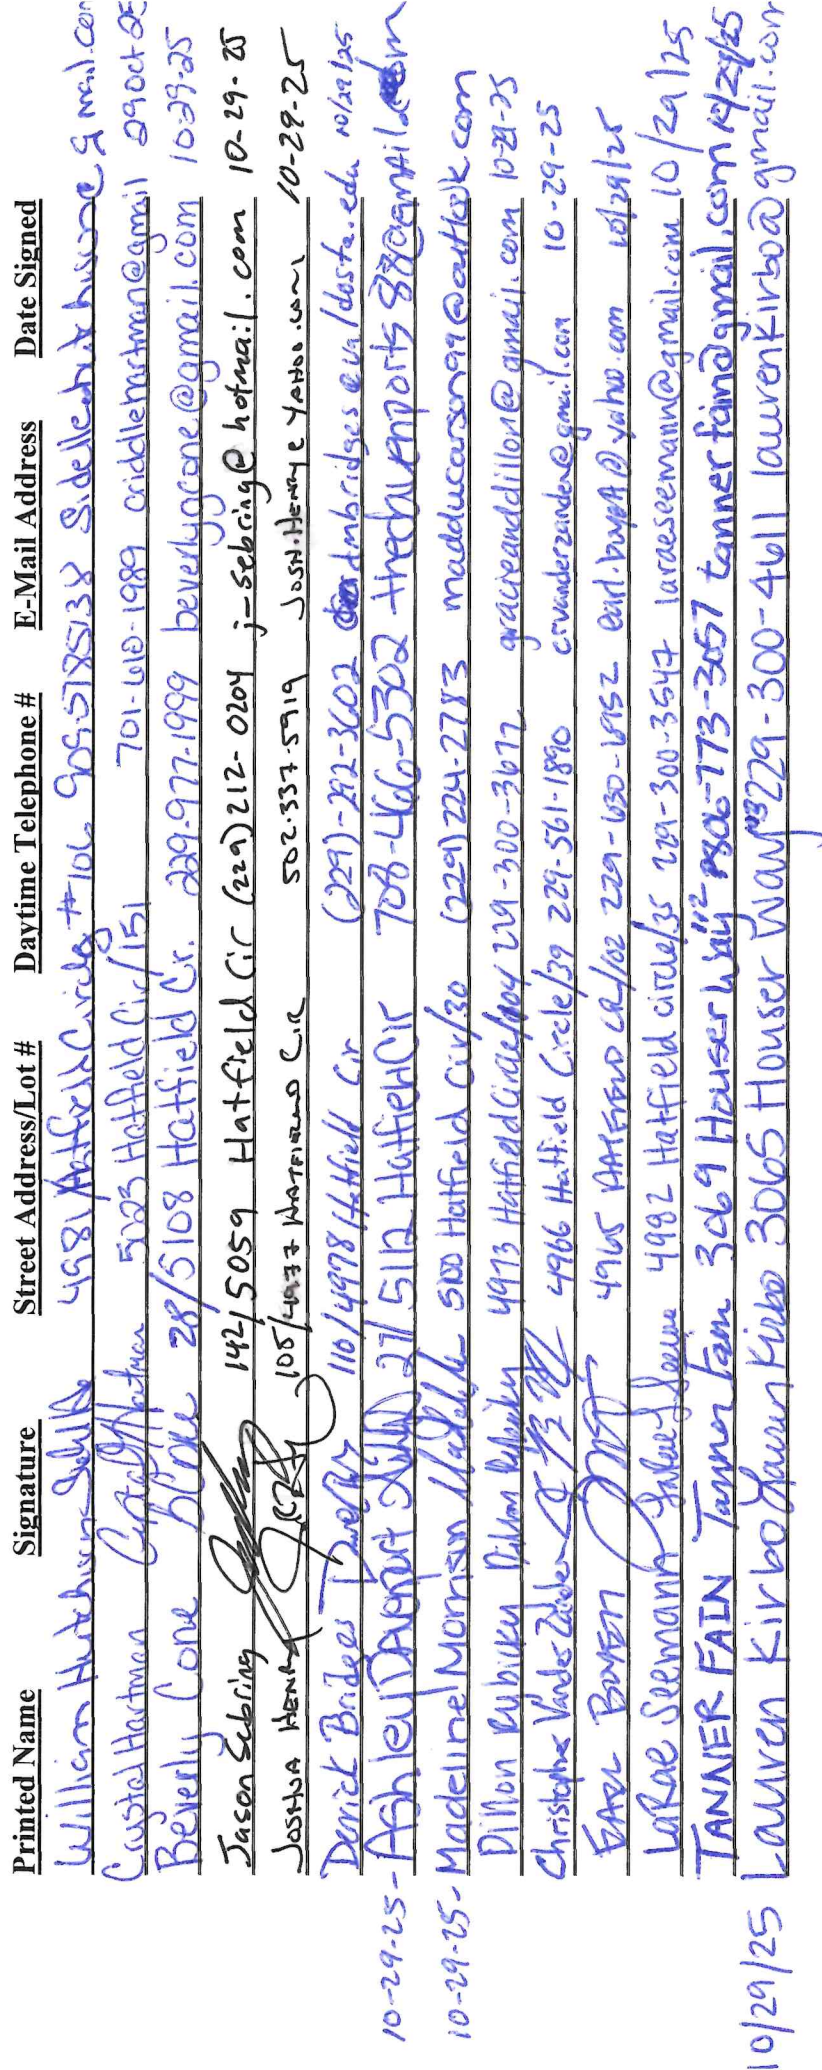 Printed Name Signature Street Address/Lot # Daytime Telephone # E-Mail Address Date Signed
William Hutchinson 4981 Hatfield Circle #106 909.5785138 gmail.com
Crystal Hartman Crystal Hartman 5023 Hatfield Cir/151 701-610-1989 criddlehartman@gmail 29 Oct 25
Beverly Cone B Cone 28/5108 Hatfield Cr. 229-977-1999 beverlygcone@gmail.com 10-29-25
Jason Sebring 142/5059 Hatfield Cir (229) 212-0204 j-sebring@hotmail.com 10-29-25
Joshua Henry 105/4977 Hatfield Cir 502.337.5919 Josh.Henry@Yahoo.com 10-29-25
Derick Bridges 110/4978 Hatfield Cir (229)-292-3602 dmbridges@valdosta.edu 10/29/25
10-29-25- Ashley Davenport 27/5112 Hatfield Cir 708-466-5302 thedavenports88@gmail.com
10-29-25- Madeline Morrison 5100 Hatfield Cir/30 (229) 224-2783 madducarson99@outlook.com
Dillon Rybicky Dillon Rybicky 4973 Hatfield Circle/104 229-300-3677 gracieanddillon@gmail.com 10-29-25
Christopher Vander Zanden 4966 Hatfield Circle/39 229-561-1890 crvanderzanden@gmail.com 10-29-25
Earl Boyett 4965 Hatfield Cir/102 229-630-6952 earl.boyett@yahoo.com 10/29/25
LaRae Seemann 4982 Hatfield circle/35 229-300-3547 laraeseemann@gmail.com 10/29/25
TANNER FAIN Tanner Fain 3069 Houser Way 112 806-773-3057 tannerfain@gmail.com 10/29/25
10/29/25 Lauren Kirbo Lauren Kirbo 3065 Houser Way 113 229-300-4611 laurenkirbo@gmail.com